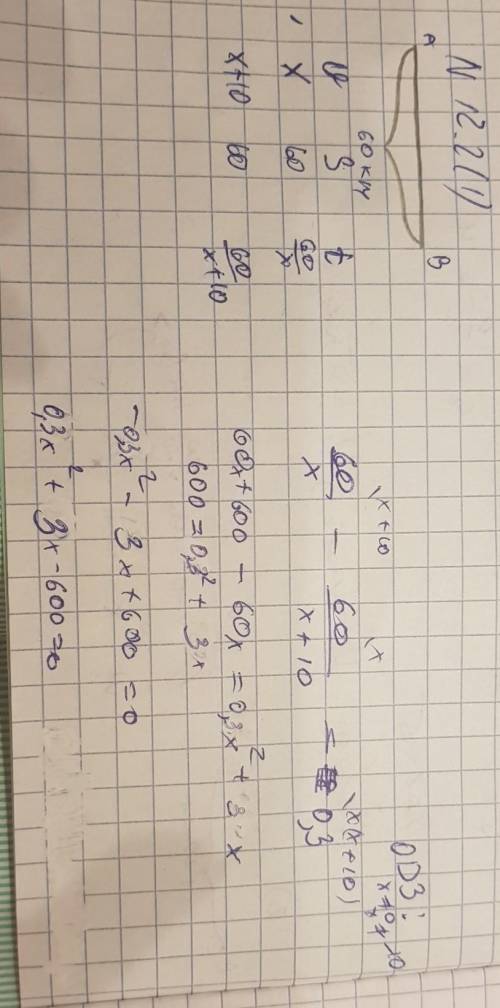 N 12.2(1)
A B
60 км
v S t
x 60 60/x
x+10 60 60/(x+10)
ОДЗ: x≠0
60/x \x+10 - 60/(x+10) \x = 0,3 \x(x+10)
60x + 600 - 60x = 0,3x² + 3x
600 = 0,3² + 3x
-0,3x² - 3x + 600 = 0
0,3x² + 3x - 600 = 0